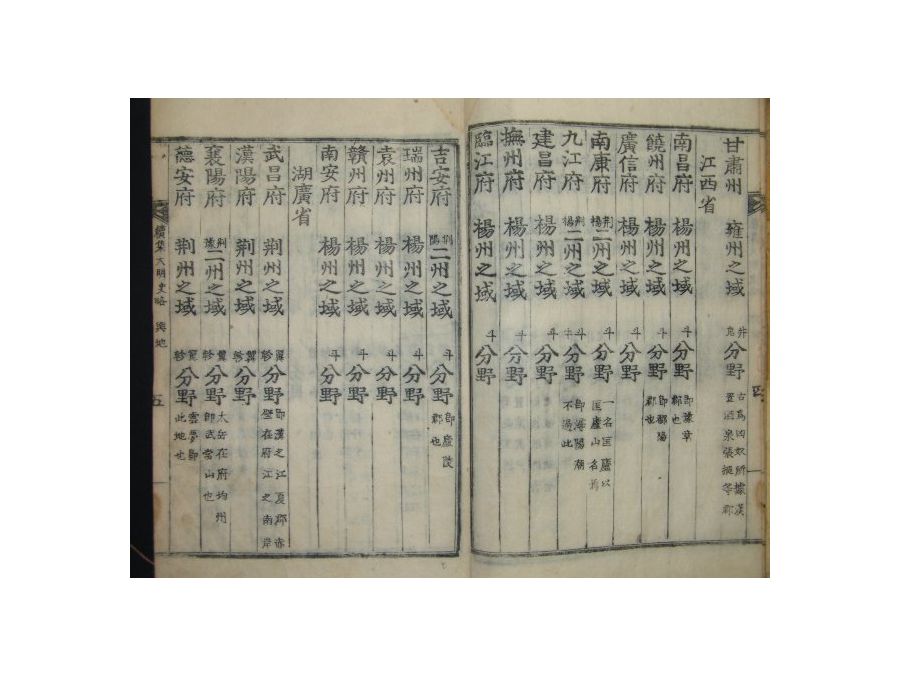 甘肅州 雍州之域 井鬼分野 古爲凶奴所據漢置酒泉張掖等郡
江西省
南昌府 楊州之域 斗分野 卽豫章郡也
饒州府 楊州之域 斗分野 卽鄱陽郡也
廣信府 楊州之域 斗分野
南康府 荊楊二州之域 斗分野 一名匡廬以匡廬山名
九江府 荊楊二州之域 斗牛分野 卽潯陽潮不過此
建昌府 楊州之域 斗分野
撫州府 楊州之域 斗分野
臨江府 楊州之域 斗分野
吉安府 荊陽二州之域 斗分野 卽廬陵郡也
瑞州府 楊州之域 斗分野
袁州府 楊州之域 斗分野
贛州府 楊州之域 斗分野
南安府 楊州之域 斗分野
湖廣省
武昌府 荆州之域 翼軫分野 卽漢之江夏郡赤壁在府江之南岸
漢陽府 荆州之域 翼軫分野
襄陽府 荊豫二州之域 翼軫分野 太岳在府均州卽武當山也
德安府 荆州之域 翼軫分野 雲夢卽此地也
續集大明史略 輿地 五